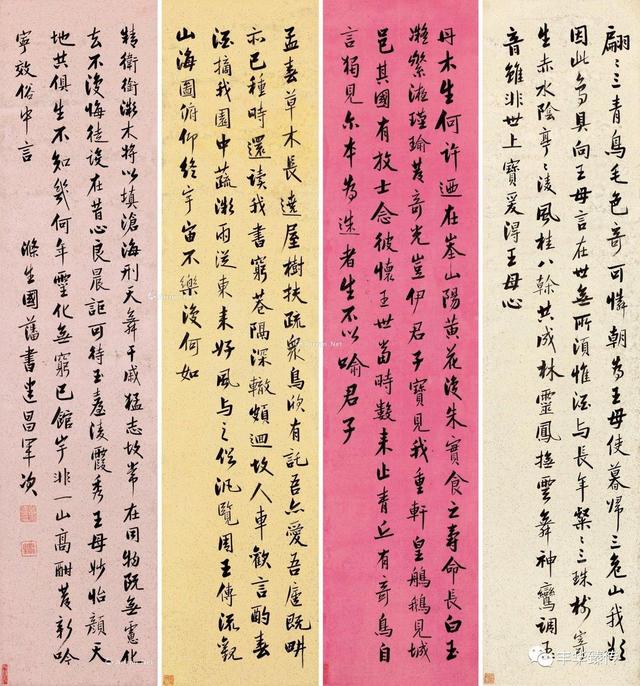 翩〻三青鳥毛色奇可憐朝為王母使暮歸三危山我欲
因此鳥具向王母言在世無所須惟酒与長年粲〻三珠樹寄
生赤水陰亭〻淩風桂八幹共成林靈鳳撫雲舞神鸞調玉
音雖非世上寶爰得王母心
丹木生何許迺在峚山陽黄花復朱實食之壽命長白玉
凝素液瑾瑜發奇光豈伊君子寶見我重軒皇鵃鵝見城
邑其國有放士念彼懷王世當時數来止青丘有奇鳥自
言獨見尔本為迷者生不以喻君子
孟夏草木長遶屋樹扶疏衆鳥欣有託吾亦愛吾廬既畊
亦已種時還读我書窮巷隔深轍頗迴故人車歡言酌春
酒摘我園中蔬微雨從東来好風与之俱汎覽周王傳流觀
山海圖俯仰終宇宙不樂復何如
精衛銜微木将以填滄海刑天舞干戚猛志故常在同物既無慮化
去不復悔徒設在昔心良晨詎可待玉臺凌霞秀王母妙怡顏天
地共俱生不知幾何年靈化無窮已館宇非一山高酣發新吟
寧效俗中言
滌生國藩書建昌軍次